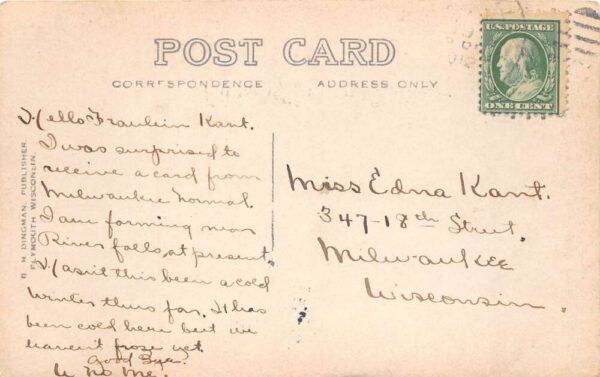 POST CARD
CORRESPONDENCE
ADDRESS ONLY
U.S. POSTAGE
ONE CENT
B. H. DINGMAN, PUBLISHER,
PLYMOUTH WISCONLIN.
Hello Fraulein Kant.
I was surprised to
receive a card from
Milwaukee Normal.
I am farming near
River falls, at present.
Hasnt this been a cold
winter thus far. It has
been cold here but we
havent froze yet.
Good Bye.
U No Me.
Miss Edna Kant.
347-18th Street.
Milwaukee
Wisconsin.